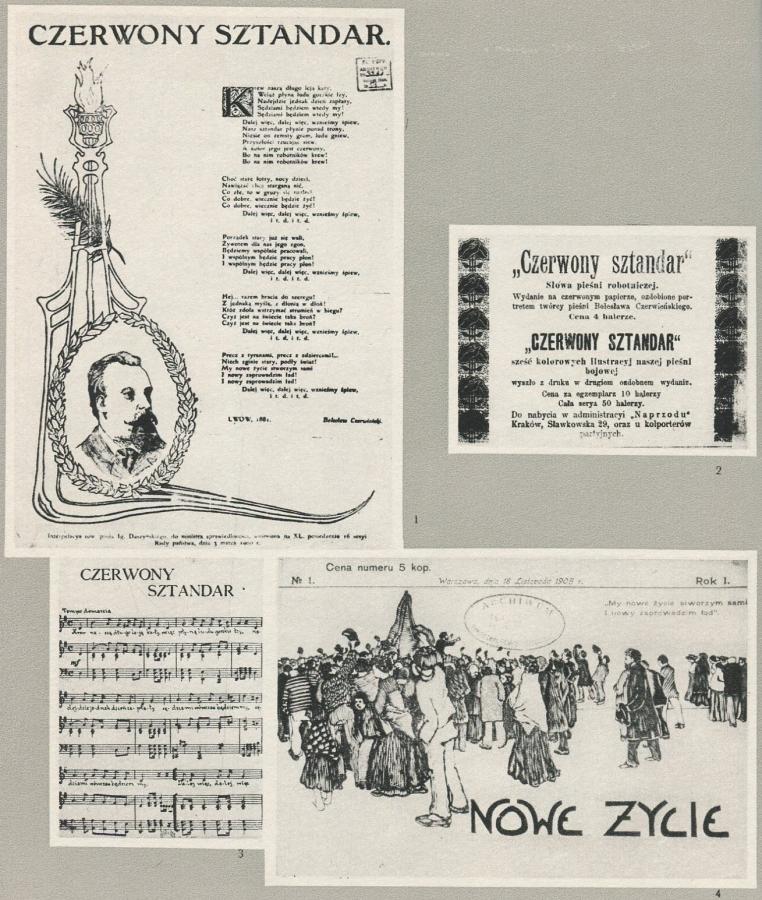 CZERWONY SZTANDAR.
Krew naszą długo leją katy,
Wciąż płyną ludu gorzkie łzy,
Nadejdzie jednak dzień zapłaty,
Sędziami będziem wtedy my!
Sędziami będziem wtedy my!
Dalej więc, dalej więc, wznieśmy śpiew,
Nasz sztandar płynie ponad trony,
Niesie on zemsty grom, ludu gniew,
Przyszłości rzucając siew.
A kolor jego jest czerwony,
Bo na nim robotników krew!
Bo na nim robotników krew!
Choć stare łotry, nocy dzieci,
Nawiązać chcą starganą nić,
Co złe, to w gruzy się rozleci
Co dobre, wiecznie będzie żyć!
Co dobre, wiecznie będzie żyć!
Dalej więc, dalej więc, wznieśmy śpiew,
i t. d. i t. d.
Porządek stary już się wali,
Żywotem dla nas jego zgon,
Będziemy wspólnie pracowali,
I wspólnym będzie pracy plon!
I wspólnym będzie pracy plon!
Dalej więc, dalej więc, wznieśmy śpiew,
i t. d. i t. d.
Hej... razem bracia do szeregu!
Z jednaką myślą, z dłonią w dłoń!
Któż zdoła wstrzymać strumień w biegu?
Czyż jest na świecie taka broń?
Czyż jest na świecie taka broń?
Dalej więc, dalej więc, wznieśmy śpiew,
i t. d. i t. d.
Precz z tyranami, precz z zdziercami!..
Niech zginie stary, podły świat!
My nowe życie stworzym sami
I nowy zaprowadzim ład!
I nowy zaprowadzim ład!
Dalej więc, dalej więc, wznieśmy śpiew,
i t. d. i t. d.
LWÓW, 1881. Bolesław Czerwieński.
Interpelacya tow. posła Ig. Daszyńskiego, do ministra sprawiedliwości, wniesiona na XL. posiedzeniu 16 sesyi
Rady państwa, dnia 3 marca 1900 r.
1
„Czerwony sztandar“
Słowa pieśni robotniczej.
Wydanie na czerwonym papierze, ozdobione por-
tretem twórcy pieśni Bolesława Czerwieńskiego.
Cena 4 halerze.
„CZERWONY SZTANDAR“
sześć kolorowych ilustracyj naszej pieśni
bojowej
wyszło z druku w drugiem ozdobnem wydaniu.
Cena za egzemplarz 10 halerzy
Cała serya 50 halerzy.
Do nabycia w administracyi „Naprzodu“
Kraków, Sławkowska 29, oraz u kolporterów
partyjnych.
2
CZERWONY
SZTANDAR
Tempo di marcia
mf
3
Cena numeru 5 kop.
№ 1. Warszawa, dnia 18 Listopada 1905 r. Rok I.
„My nowe życie stworzym sami
I nowy zaprowadzim ład“.
ARCHIWUM
NOWE ŻYCIE
4